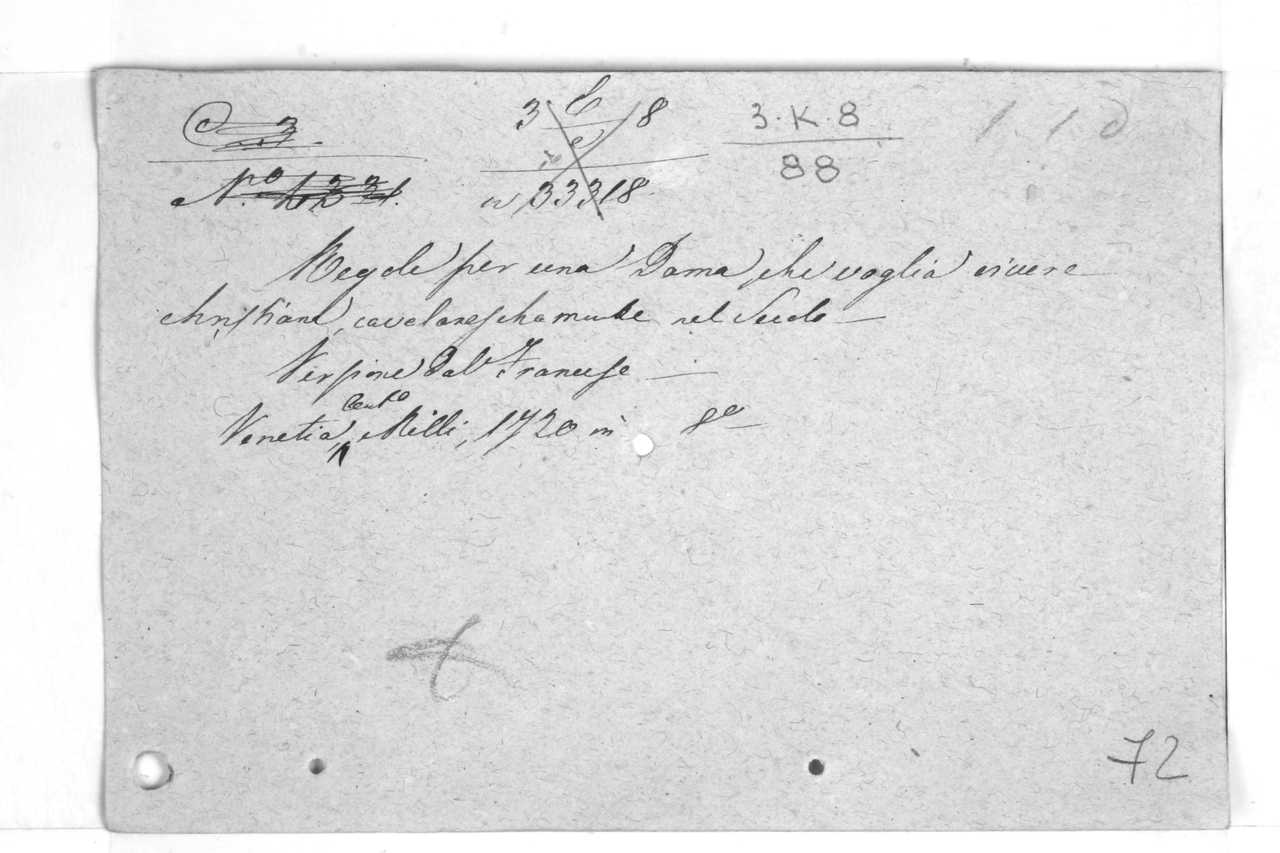 3 8 3.K.8
88
n 33318
Regole per una Dama, che voglia vivere
christiana, cavelareschamente nel Secolo —
Versione dal Francese —
Venetia, Milli, 1720 in 8°
72